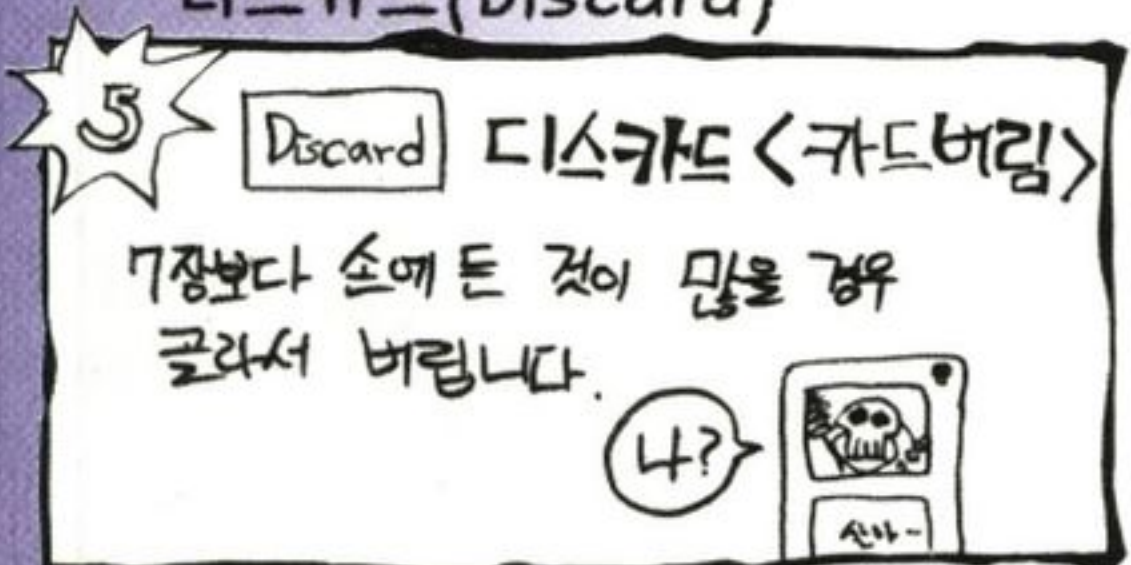 디스카드(Discard)
5
Discard 디스카드 <카드버림>
7장보다 손에 든 것이 많을 경우
골라서 버립니다.
나?